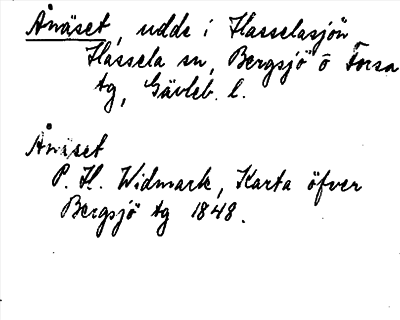 Ånäset, udde i Hasselasjön
Hassela sn, Bergsjö o Forsa
tg, Gävleb. l.
Ånäset
P. H. Widmark, Karta öfver
Bergsjö tg 1848.